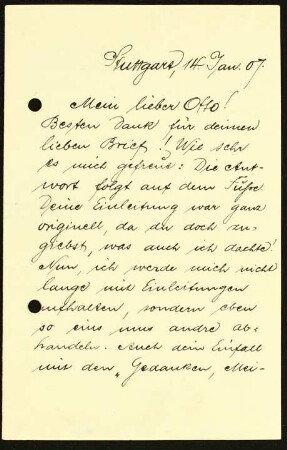 Stuttgart, 14. Jan. 07.
Mein lieber Otto!
Besten Dank für deinen
lieben Brief! Wie sehr
es mich gefreut: Die Ant-
wort folgt auf dem Fuße
Deine Einleitung war ganz
originell, da du doch zu-
giebst, was auch ich dachte!
Nun, ich werde mich nicht
lange mit Einleitungen
aufhalten, sondern eben
so eins ums andre ab-
handeln. Auch dein Einfall
mit den „Gedanken, Mei-